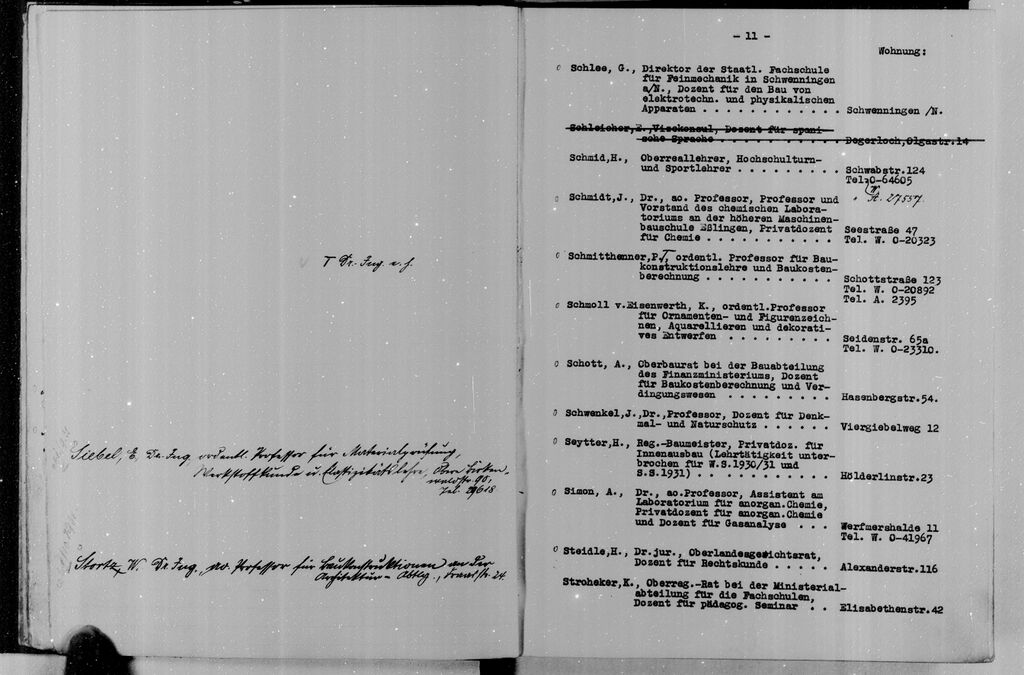 T Dr.-Ing. e.h.
Siebel, E. Dr. Ing. ordentl. Professor für Materialprüfung,
Werkstoffkunde u. Elastizitätslehre, Obere Birken-
waldstr. 90,
Tel. 29618
Stortz, W. Dr. Ing., ao. Professor für Baukonstruktionen an der
Architektur-Abtlg.,
- 11 -
Wohnung:
o Schlee, G., Direktor der Staatl. Fachschule
für Feinmechanik in Schwenningen
a/N., Dozent für den Bau von
elektrotechn. und physikalischen
Apparaten . . . . . . . . . . . . . Schwenningen /N.
Schleicher,E.,Vizekonsul, Dozent für spani-
sche Sprache . . . . . . . . . . . Degerloch,Olgastr.14
Schmid,H., Oberreallehrer, Hochschulturn-
und Sportlehrer . . . . . . . . . . Schwabstr.124
Tel. O-64605
W
" A. 27557.
o Schmidt,J., Dr., ao. Professor, Professor und
Vorstand des chemischen Labora-
toriums an der höheren Maschinen-
bauschule Eßlingen, Privatdozent Seestraße 47
für Chemie . . . . . . . . . . . . Tel. W. O-20323
o Schmitthenner,P.T, ordentl. Professor für Bau-
konstruktionslehre und Baukosten-
berechnung . . . . . . . . . . . . Schottstraße 123
Tel. W. O-20892
Tel. A. 2395
o Schmoll v.Eisenwerth, K., ordentl.Professor
für Ornamenten- und Figurenzeich-
nen, Aquarellieren und dekorati-
ves Entwerfen . . . . . . . . . Seidenstr. 65a
Tel. W. O-23310.
o Schott, A., Oberbaurat bei der Bauabteilung
des Finanzministeriums, Dozent
für Baukostenberechnung und Ver-
dingungswesen . . . . . . . . . Hasenbergstr.54.
o Schwenkel,J.,Dr.,Professor, Dozent für Denk-
mal- und Naturschutz . . . . . . Viergiebelweg 12
o Seytter,H., Reg.-Baumeister, Privatdoz. für
Innenausbau (Lehrtätigkeit unter-
brochen für W.S.1930/31 und
S.S.1931) . . . . . . . . . . . . Hölderlinstr.23
o Simon, A., Dr., ao.Professor, Assistent am
Laboratorium für anorgan.Chemie,
Privatdozent für anorgan.Chemie
und Dozent für Gasanalyse . . . Werfmershalde 11
Tel. W. O-41967
o Steidle,H., Dr.jur., Oberlandesgerichtsrat,
Dozent für Rechtskunde . . . . . Alexanderstr.116
Stroheker,K., Oberreg.-Rat bei der Ministerial-
abteilung für die Fachschulen,
Dozent für pädagog. Seminar . . Elisabethenstr.42